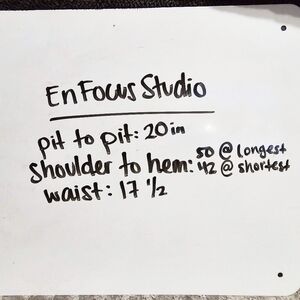 En Focus Studio
pit to pit: 20 in
shoulder to hem: 50 @ longest
42 @ shortest
waist: 17 1/2